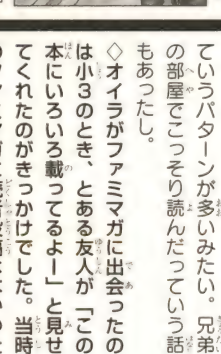 ていうパターンが多いみたい。兄弟
の部屋でこっそり読んだっていう話
もあったし。
◇オイラがファミマガに出会ったの
は小3のとき、とある友人が「この
本にいろいろ載ってるよー」と見せ
てくれたのがきっかけでした。当時